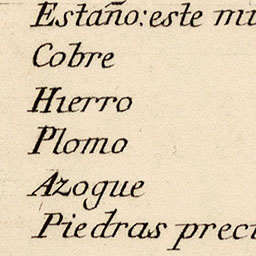 Estaño: este
Cobre
Hierro
Plomo
Azogue
Piedras